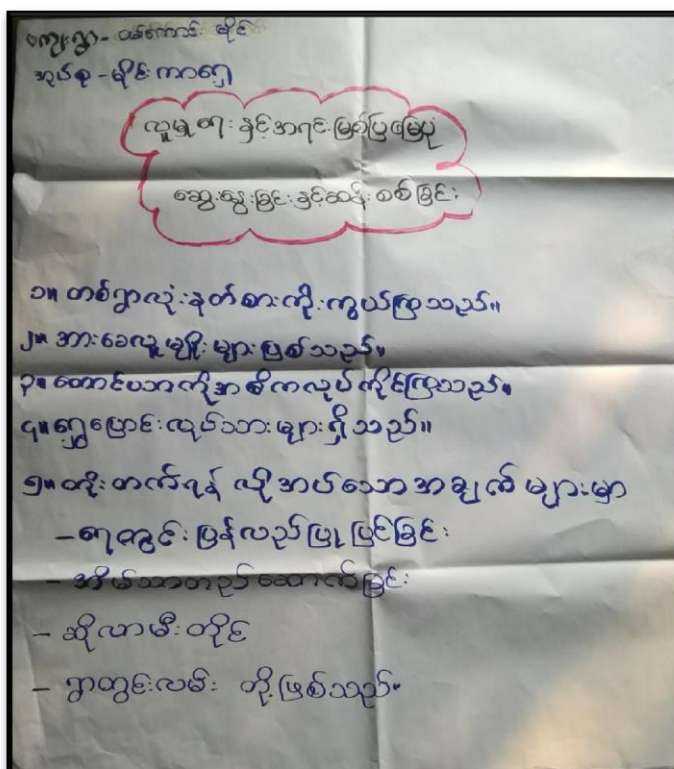 ကျေးရွာ - ဝမ်ကောင်း မိုင်
အုပ်စု - မိုင်းကာရှေ
လူမှုရေး နှင့်အရင်းမြစ်ပြမြေပုံ
ဆွေးနွေးခြင်းနှင့်ဆန်းစစ်ခြင်း
၁။ တစ်ရွာလုံးနတ်စားကိုးကွယ်ကြသည်။
၂။ အားခေလူမျိုးများဖြစ်သည်။
၃။ တောင်ယာကိုအဓိကလုပ်ကိုင်ကြသည်။
၄။ ရွှေ့ပြောင်းလုပ်သားများရှိသည်။
၅။ တိုးတက်ရန် လိုအပ်သောအချက်များမှာ
- ရေတွင်းပြန်လည်ပြုပြင်ခြင်း
- အိမ်သာတည်ဆောက်ခြင်း
- ဆိုလာမီးတိုင်
- ရွာတွင်းလမ်း တို့ဖြစ်သည်။